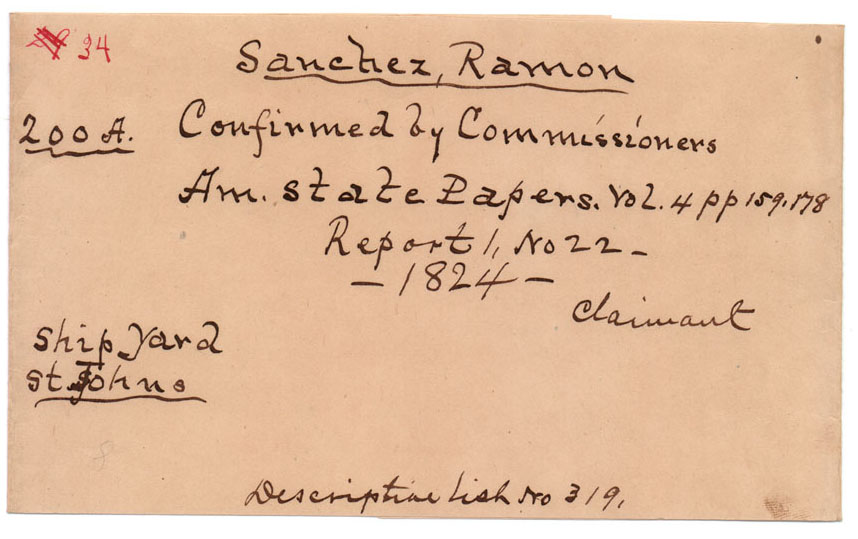 34
Sanchez, Ramon
200 A. Confirmed by Commissioners
Am. State Papers. Vol. 4 pp 159.178
Report 1, No 22 -
- 1824 -
Claimant
Ship Yard
St. Johns
8
Descriptive list No 319.